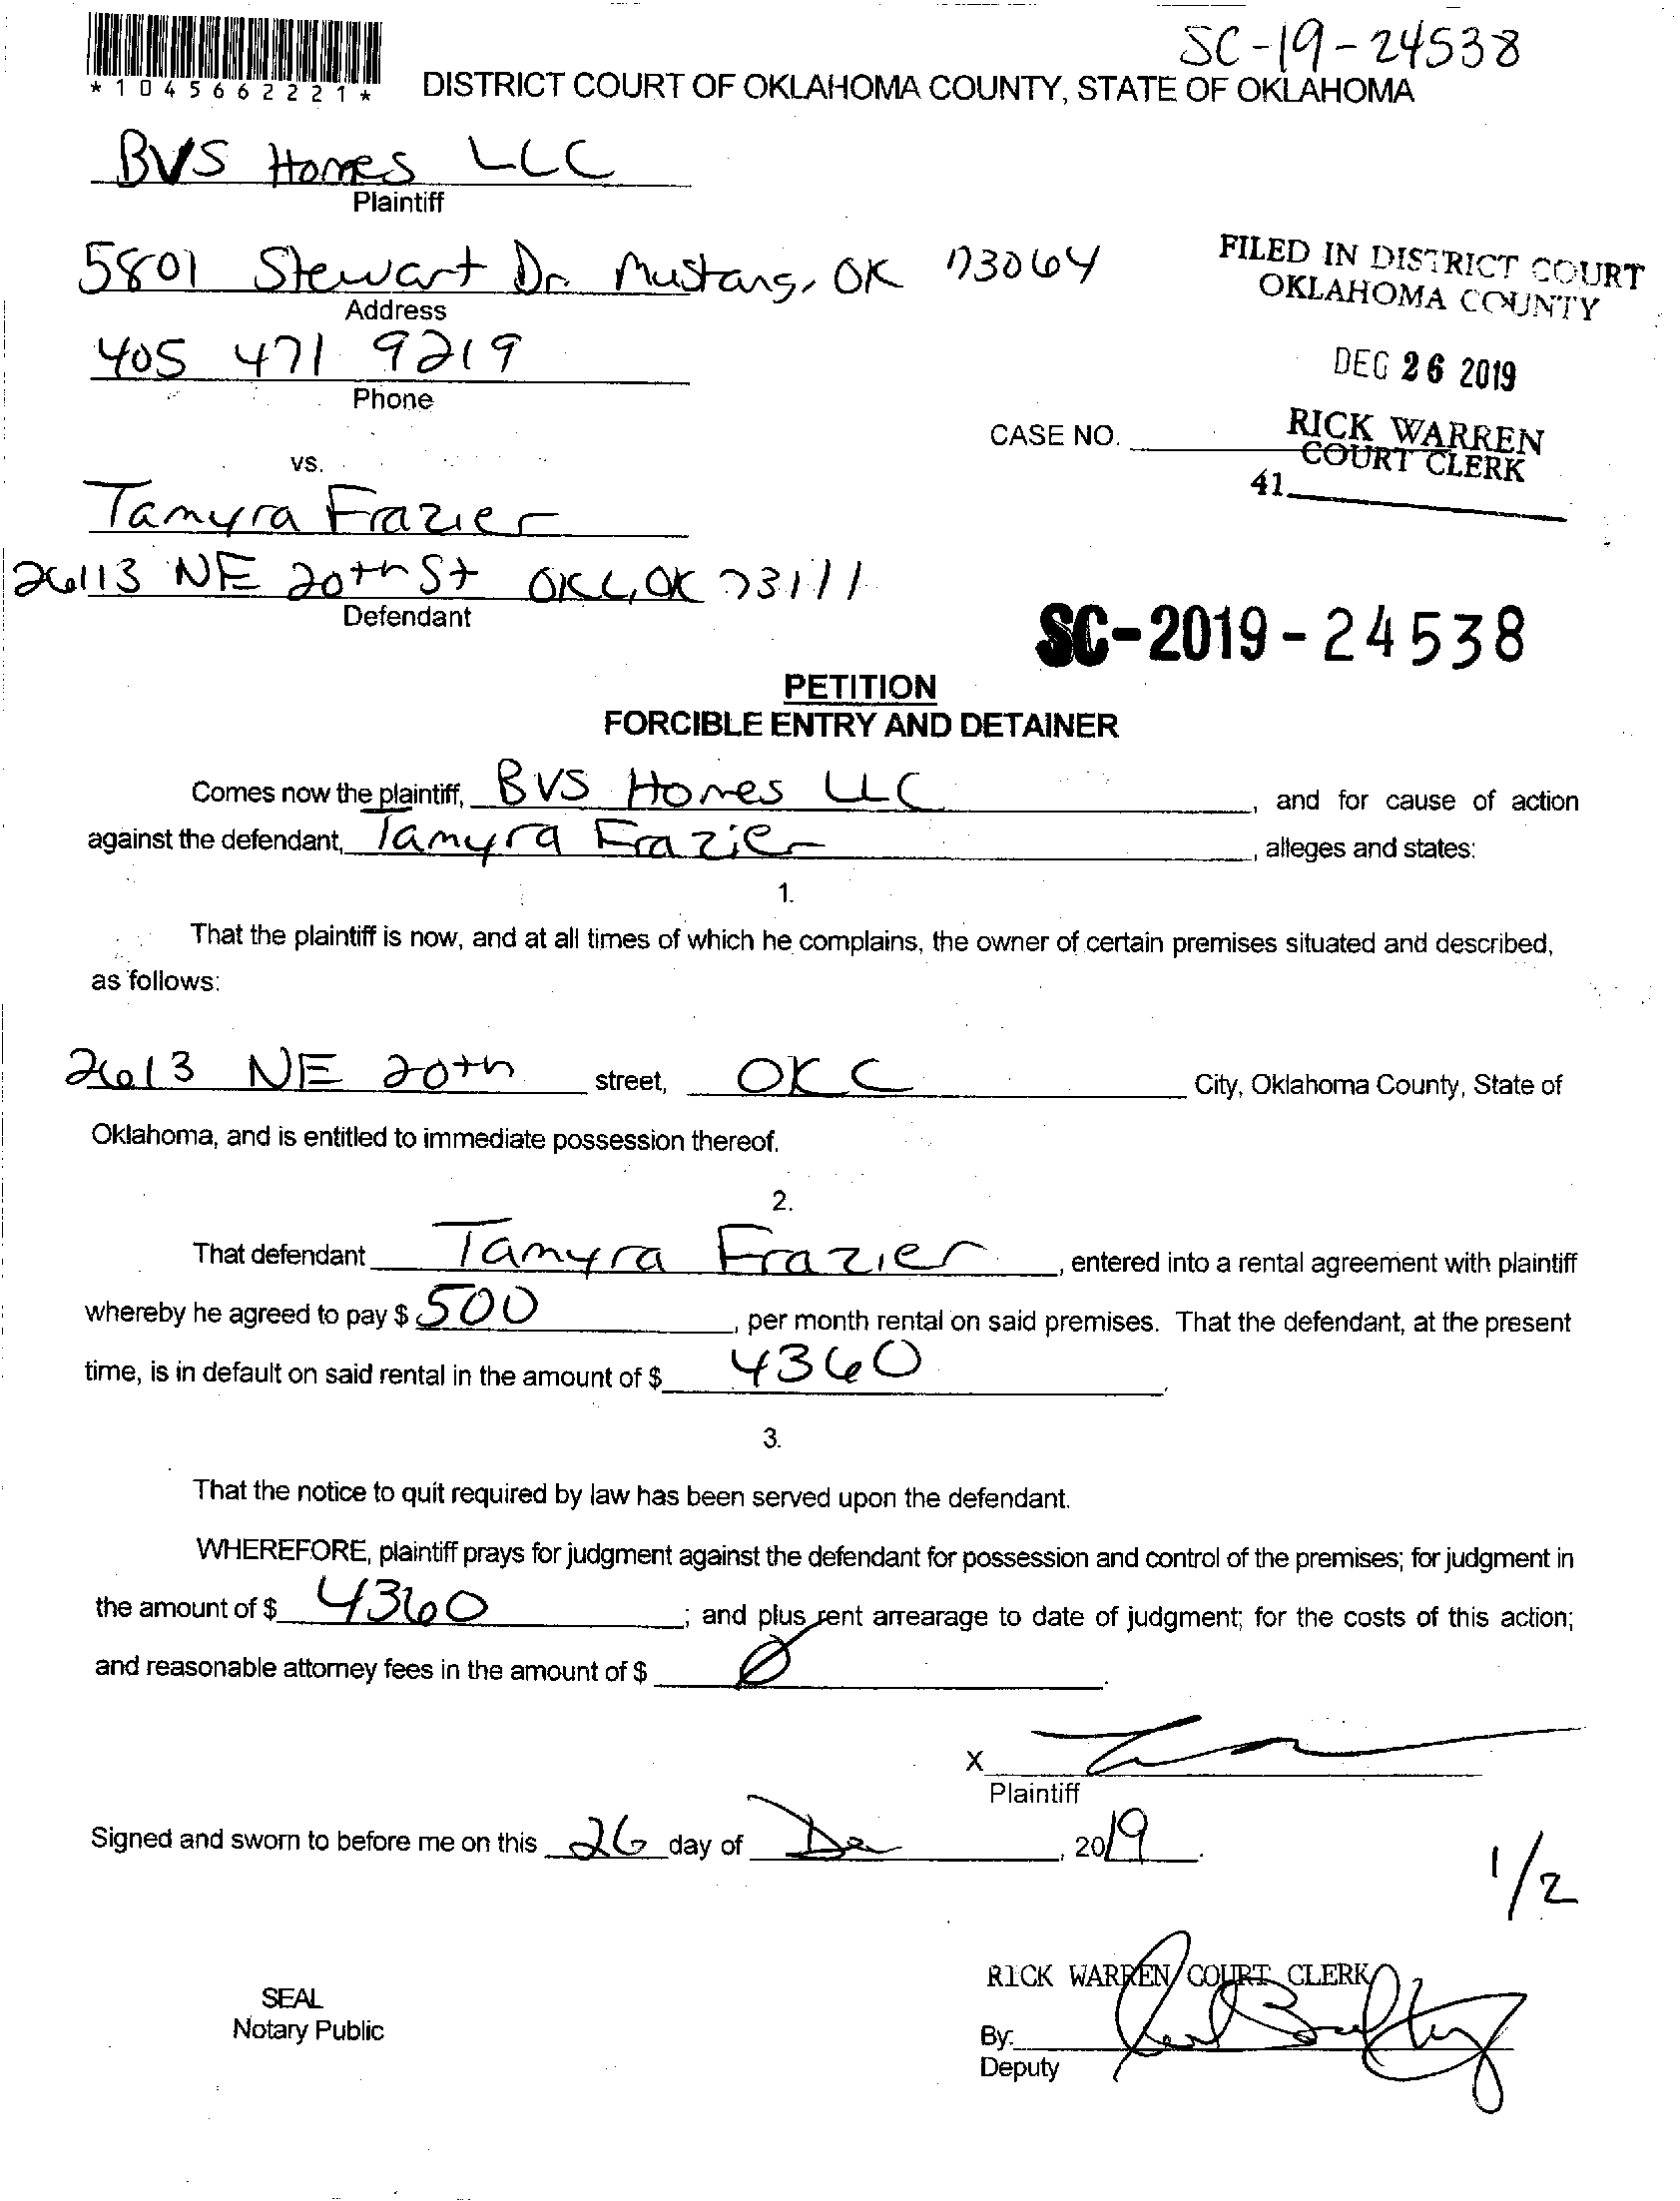 SC-19-24538
*1045662221*
DISTRICT COURT OF OKLAHOMA COUNTY, STATE OF OKLAHOMA
BVS Homes LLC
Plaintiff
5801 Stewart Dr. Mustang, OK 73064
Address
405 471 9219
Phone
FILED IN DISTRICT COURT
OKLAHOMA COUNTY
DEC 26 2019
RICK WARREN
COURT CLERK
41
CASE NO.
vs.
Tamyra Frazier
2613 NE 20th St OKC, OK 73111
Defendant
SC-2019-24538
PETITION
FORCIBLE ENTRY AND DETAINER
Comes now the plaintiff, BVS Homes LLC, and for cause of action
against the defendant, Tamyra Frazier, alleges and states:
1.
That the plaintiff is now, and at all times of which he complains, the owner of certain premises situated and described,
as follows:
2613 NE 20th street, OKC City, Oklahoma County, State of
Oklahoma, and is entitled to immediate possession thereof.
2.
That defendant Tamyra Frazier, entered into a rental agreement with plaintiff
whereby he agreed to pay $ 500, per month rental on said premises. That the defendant, at the present
time, is in default on said rental in the amount of $ 4360.
3.
That the notice to quit required by law has been served upon the defendant.
WHEREFORE, plaintiff prays for judgment against the defendant for possession and control of the premises; for judgment in
the amount of $ 4360; and plus rent arrearage to date of judgment; for the costs of this action;
and reasonable attorney fees in the amount of $ 0.
X
Plaintiff
Signed and sworn to before me on this 26 day of Dec, 2019.
1/2
RICK WARREN COURT CLERK
SEAL
Notary Public
By:
Deputy